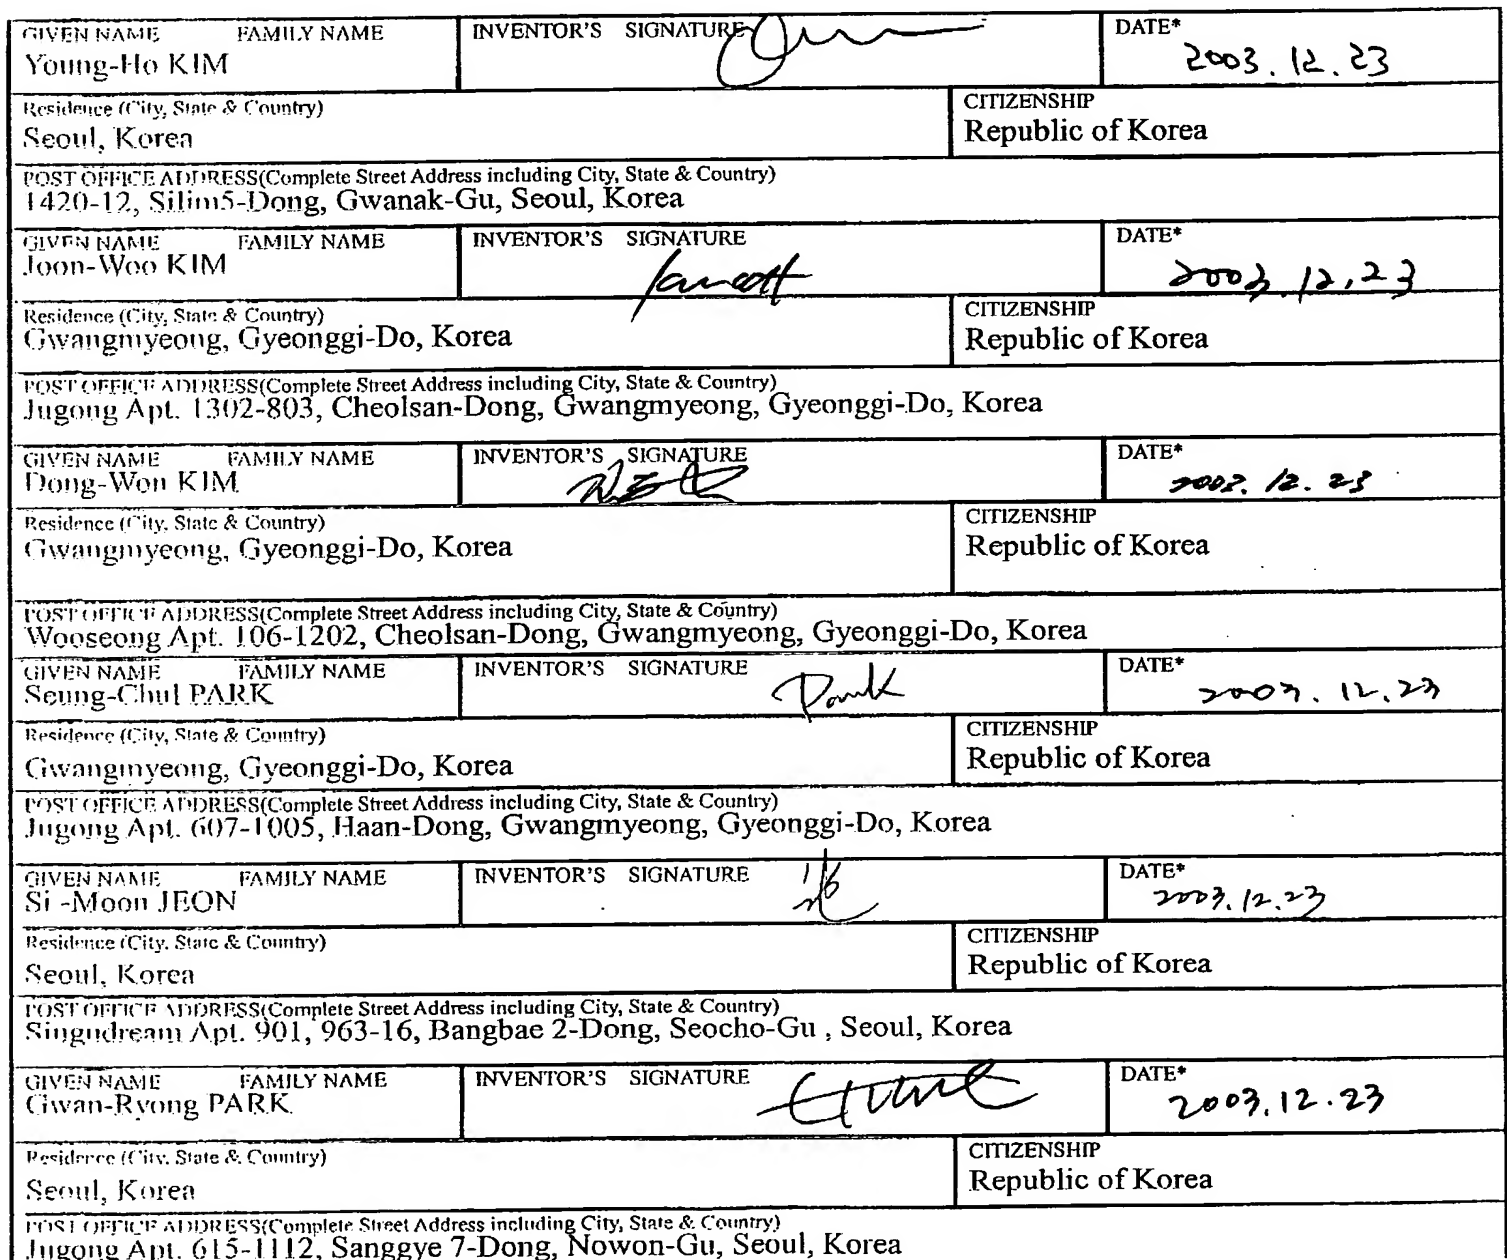 GIVEN NAME FAMILY NAME INVENTOR'S SIGNATURE DATE*
Young-Ho KIM 2003.12.23
Residence (City, State & Country) CITIZENSHIP
Seoul, Korea Republic of Korea
POST OFFICE ADDRESS(Complete Street Address including City, State & Country)
1420-12, Silim5-Dong, Gwanak-Gu, Seoul, Korea
GIVEN NAME FAMILY NAME INVENTOR'S SIGNATURE DATE*
Joon-Woo KIM 2003.12.23
Residence (City, State & Country) CITIZENSHIP
Gwangmyeong, Gyeonggi-Do, Korea Republic of Korea
POST OFFICE ADDRESS(Complete Street Address including City, State & Country)
Jugong Apt. 1302-803, Cheolsan-Dong, Gwangmyeong, Gyeonggi-Do, Korea
GIVEN NAME FAMILY NAME INVENTOR'S SIGNATURE DATE*
Dong-Won KIM 2003.12.23
Residence (City, State & Country) CITIZENSHIP
Gwangmyeong, Gyeonggi-Do, Korea Republic of Korea
POST OFFICE ADDRESS(Complete Street Address including City, State & Country)
Wooseong Apt. 106-1202, Cheolsan-Dong, Gwangmyeong, Gyeonggi-Do, Korea
GIVEN NAME FAMILY NAME INVENTOR'S SIGNATURE DATE*
Seung-Chul PARK Park 2003.12.23
Residence (City, State & Country) CITIZENSHIP
Gwangmyeong, Gyeonggi-Do, Korea Republic of Korea
POST OFFICE ADDRESS(Complete Street Address including City, State & Country)
Jugong Apt. 607-1005, Haan-Dong, Gwangmyeong, Gyeonggi-Do, Korea
GIVEN NAME FAMILY NAME INVENTOR'S SIGNATURE DATE*
Si -Moon JEON 2003.12.23
Residence (City, State & Country) CITIZENSHIP
Seoul, Korea Republic of Korea
POST OFFICE ADDRESS(Complete Street Address including City, State & Country)
Singudream Apt. 901, 963-16, Bangbae 2-Dong, Seocho-Gu , Seoul, Korea
GIVEN NAME FAMILY NAME INVENTOR'S SIGNATURE DATE*
Gwan-Ryong PARK 2003.12.23
Residence (City, State & Country) CITIZENSHIP
Seoul, Korea Republic of Korea
POST OFFICE ADDRESS(Complete Street Address including City, State & Country)
Jugong Apt. 615-1112, Sanggye 7-Dong, Nowon-Gu, Seoul, Korea